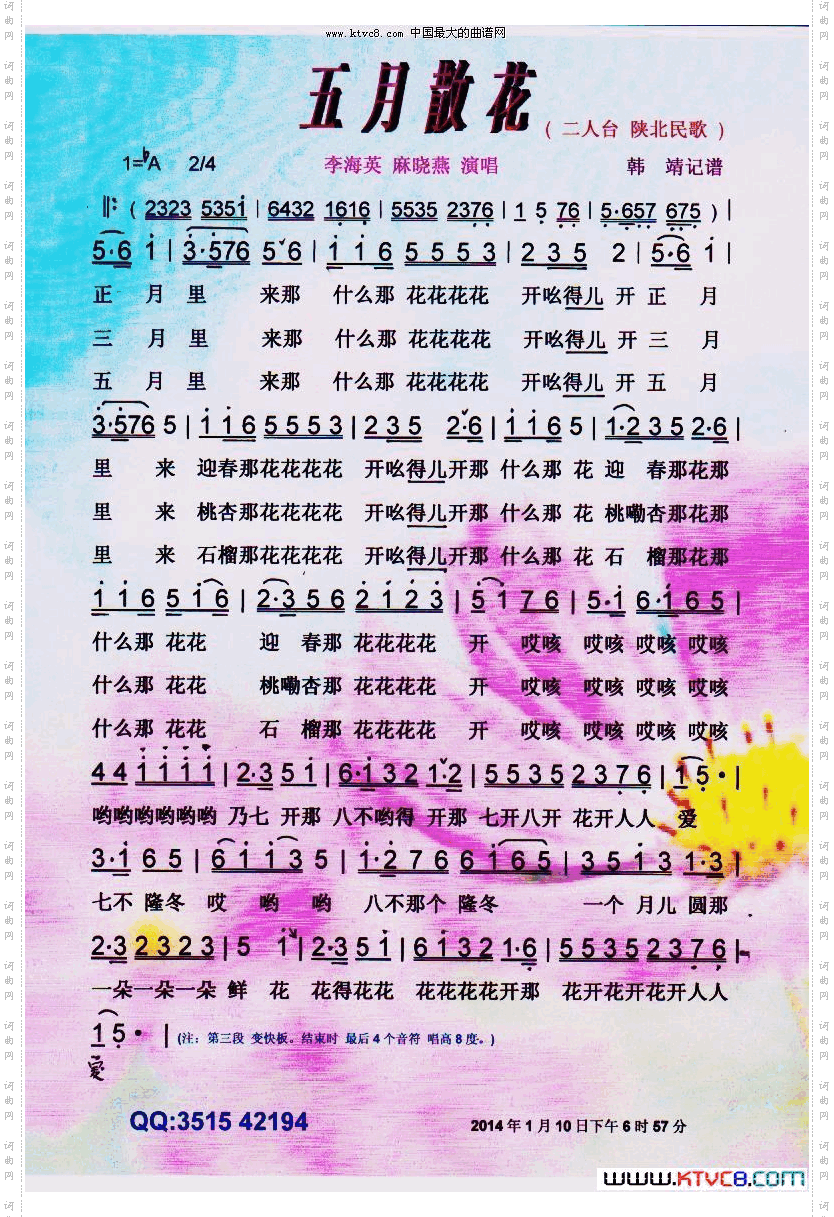 www.ktvc8.com 中国最大的曲谱网
五月散花
( 二人台 陕北民歌 )
1=♭A 2/4 李海英 麻晓燕 演唱 韩 靖记谱
‖: ( 2323 5351 | 6432 1616 | 5535 2376 | 1 5 76 | 5·657 675 ) |
5·6 1 | 3·576 5ˇ6 | 1 1 6 5 5 5 3 | 2 3 5 2 | 5·6 1 |
正 月 里 来那 什么那 花花花花 开吆得儿 开 正 月
三 月 里 来那 什么那 花花花花 开吆得儿 开 三 月
五 月 里 来那 什么那 花花花花 开吆得儿 开 五 月
3·576 5 | 1 1 6 5 5 5 3 | 2 3 5 2ˇ·6 | 1 1 6 5 | 1·2 3 5 2·6 |
里 来 迎春那花花花花 开吆得儿开那 什么那 花 迎 春那花那
里 来 桃杏那花花花花 开吆得儿开那 什么那 花 桃嘞杏那花那
里 来 石榴那花花花花 开吆得儿开那 什么那 花 石 榴那花那
1 1 6 5 1 6 | 2·3 5 6 2 1 2 3 | 5 1 7 6 | 5·1 6·1 6 5 |
什么那 花花 迎 春那 花花花花 开 哎咳 哎咳 哎咳 哎咳
什么那 花花 桃嘞杏那 花花花花 开 哎咳 哎咳 哎咳 哎咳
什么那 花花 石 榴那 花花花花 开 哎咳 哎咳 哎咳 哎咳
4 4 1 1 1 1 | 2·3 5 1 | 6·1 3 2 1ˇ·2 | 5 5 3 5 2 3 7 6 | 1 5 · |
哟哟哟哟哟哟 乃七 开那 八不哟得 开那 七开八开 花开人人 爱
3·1 6 5 | 6 1 1 3 5 | 1·2 7 6 6 1 6 5 | 3 5 1 3 1·3 |
七不 隆冬 哎 哟 哟 八不那个 隆冬 一个 月儿 圆那
2·3 2 3 2 3 | 5 1 | 2·3 5 1 | 6 1 3 2 1·6 | 5 5 3 5 2 3 7 6 |
一朵一朵一朵 鲜 花 花得花花 花花花花开那 花开花开花开人人
1 5 · | (注：第三段 变快板。结束时 最后4个音符 唱高8度。)
爱
QQ:3515 42194
2014年1月10日下午6时57分
www.KTVC8.com
词曲网